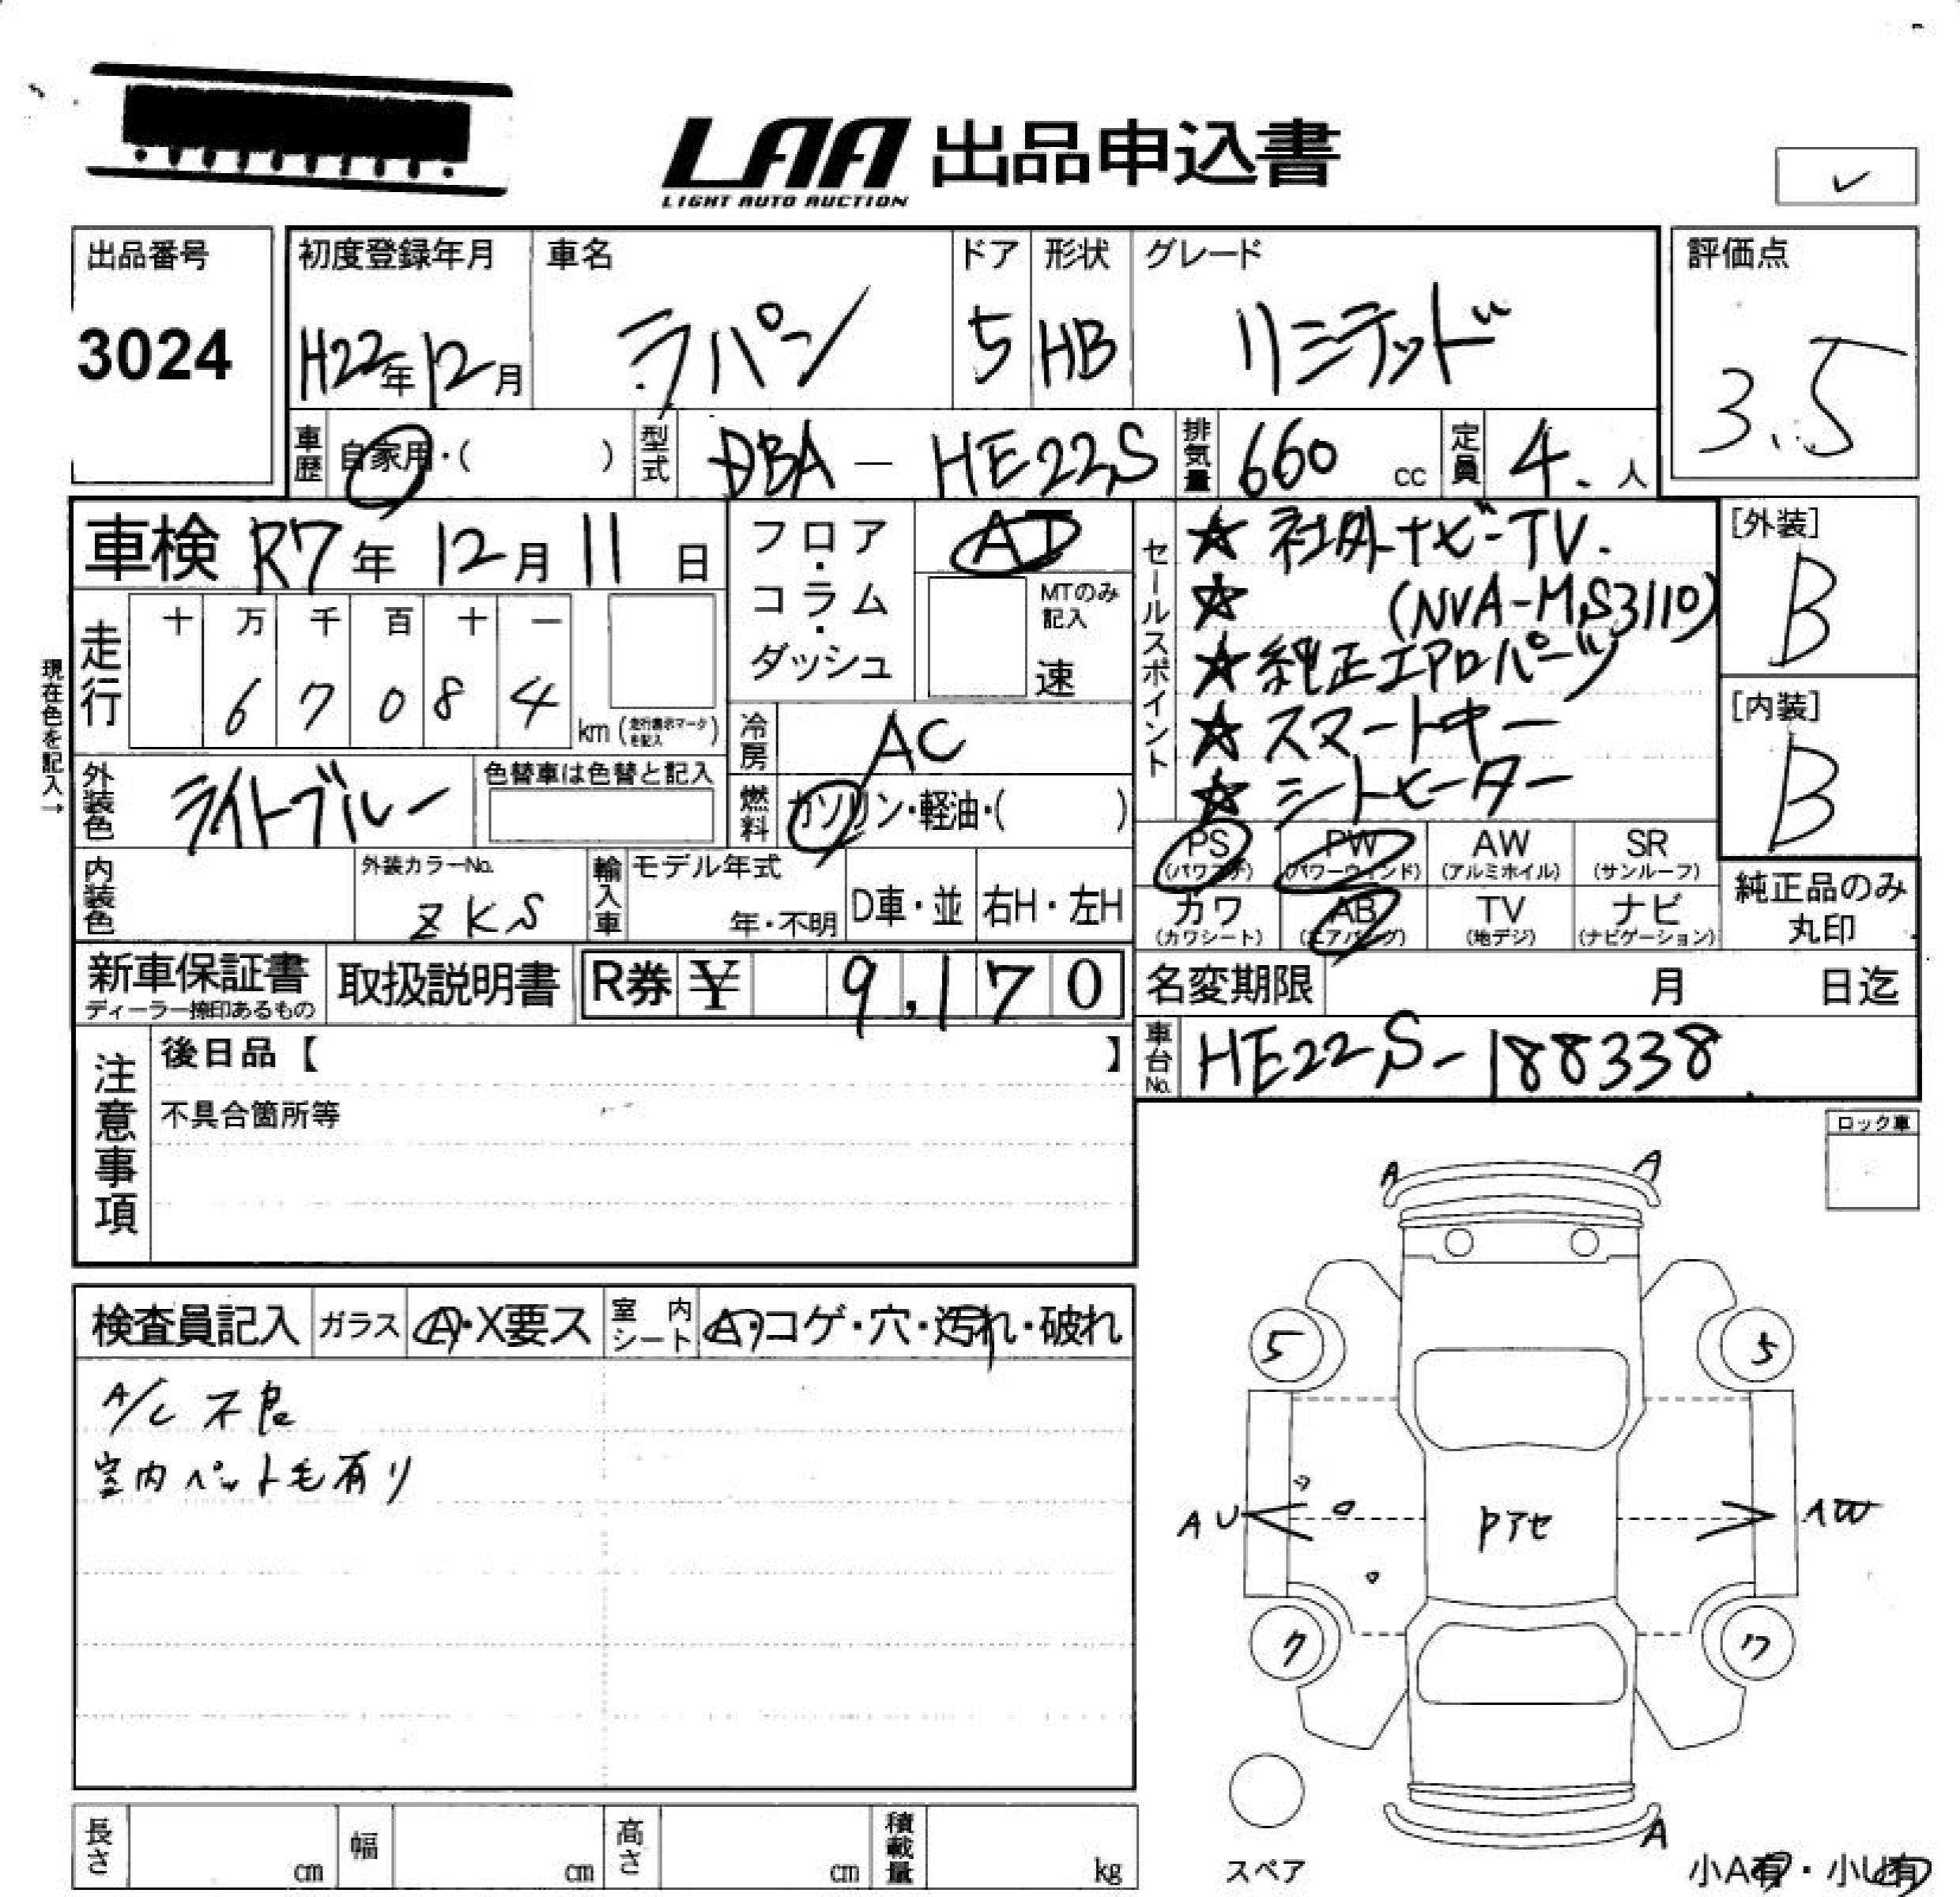 LAA 出品申込書
LIGHT AUTO AUCTION
✓
出品番号
3024
初度登録年月
H22年12月
車名
ラパン
ドア
5
形状
HB
グレード
リミテッド
評価点
3.5
車歴
自家用・( )
型式
DBA - HE22S
排気量
660 cc
定員
4. 人
車検 R7年 12月 11日
フロア・コラム・ダッシュ
AT
MTのみ記入
速
セールスポイント
★ 社外ナビ-TV.
☆ (NVA-MS3110)
★ 純正エアロパーツ
★ スマートキー
★ シートヒーター
[外装]
B
[内装]
B
現在色を記入→
走行
十 万 千 百 十 一
6 7 0 8 4
km (走行表示マークを記入)
冷房
AC
外装色
ライトブルー
色替車は色替と記入
燃料
ガソリン・軽油・( )
内装色
外装カラーNo.
ZKS
輸入車
モデル年式
年・不明
D車・並
右H・左H
PS
(パワステ)
PW
(パワーウィンド)
AW
(アルミホイル)
SR
(サンルーフ)
カワ
(カワシート)
AB
(エアバッグ)
TV
(地デジ)
ナビ
(ナビゲーション)
純正品のみ
丸印
新車保証書
ディーラー捺印あるもの
取扱説明書
R券 ¥ 9,170
名変期限 月 日迄
車台No.
HE22S-188338
注意事項
後日品【 】
不具合箇所等
ロック車
検査員記入
ガラス
A・X要ス
室内シート
A・コゲ・穴・汚れ・破れ
A/C 不良
室内ペット毛有り
A A
5 5
AU
AW
ワ ワ
A
スペア
小A有・小U有
長さ cm
幅 cm
高さ cm
積載量 kg